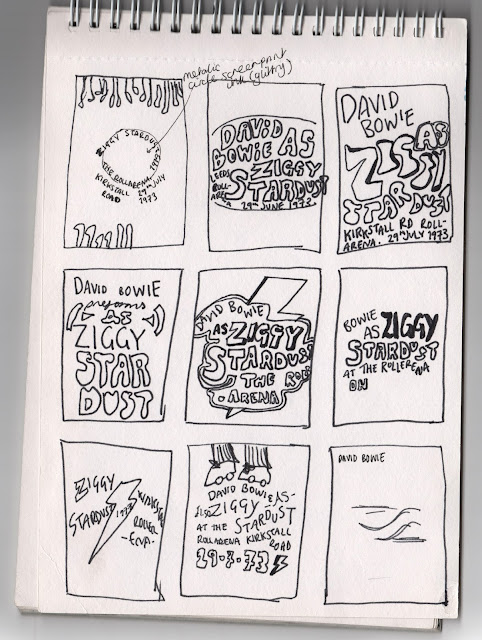 metalic
circle screenprint
with (glittry)
ZIGGY STARDUST
THE ROLLARENA,
KIRKSTALL
ROAD
29TH JULY
1973
DAVID AS
BOWIE
ZIGGY
LEEDS
ROLL-
ARENA
STARDUST
29TH JUNE 1973
DAVID
BOWIE
AS
ZIGGY
STARDUST
KIRKSTALL RD ROLL-
ARENA. 29TH JULY 1973
DAVID BOWIE
performs
AS
ZIGGY
STAR
DUST
DAVID BOWIE
AS ZIGGY
STARDUST
THE ROLL
ARENA
BOWIE
AS ZIGGY
STARDUST
AT THE ROLLERENA
ON
ZIGGY
STARDUST
1973
ROLLER
DAVID BOWIE-AS-
ZIGGY
STARDUST
AT THE
ROLLARENA KIRKSTALL
ROAD
29.7.73
DAVID BOWIE